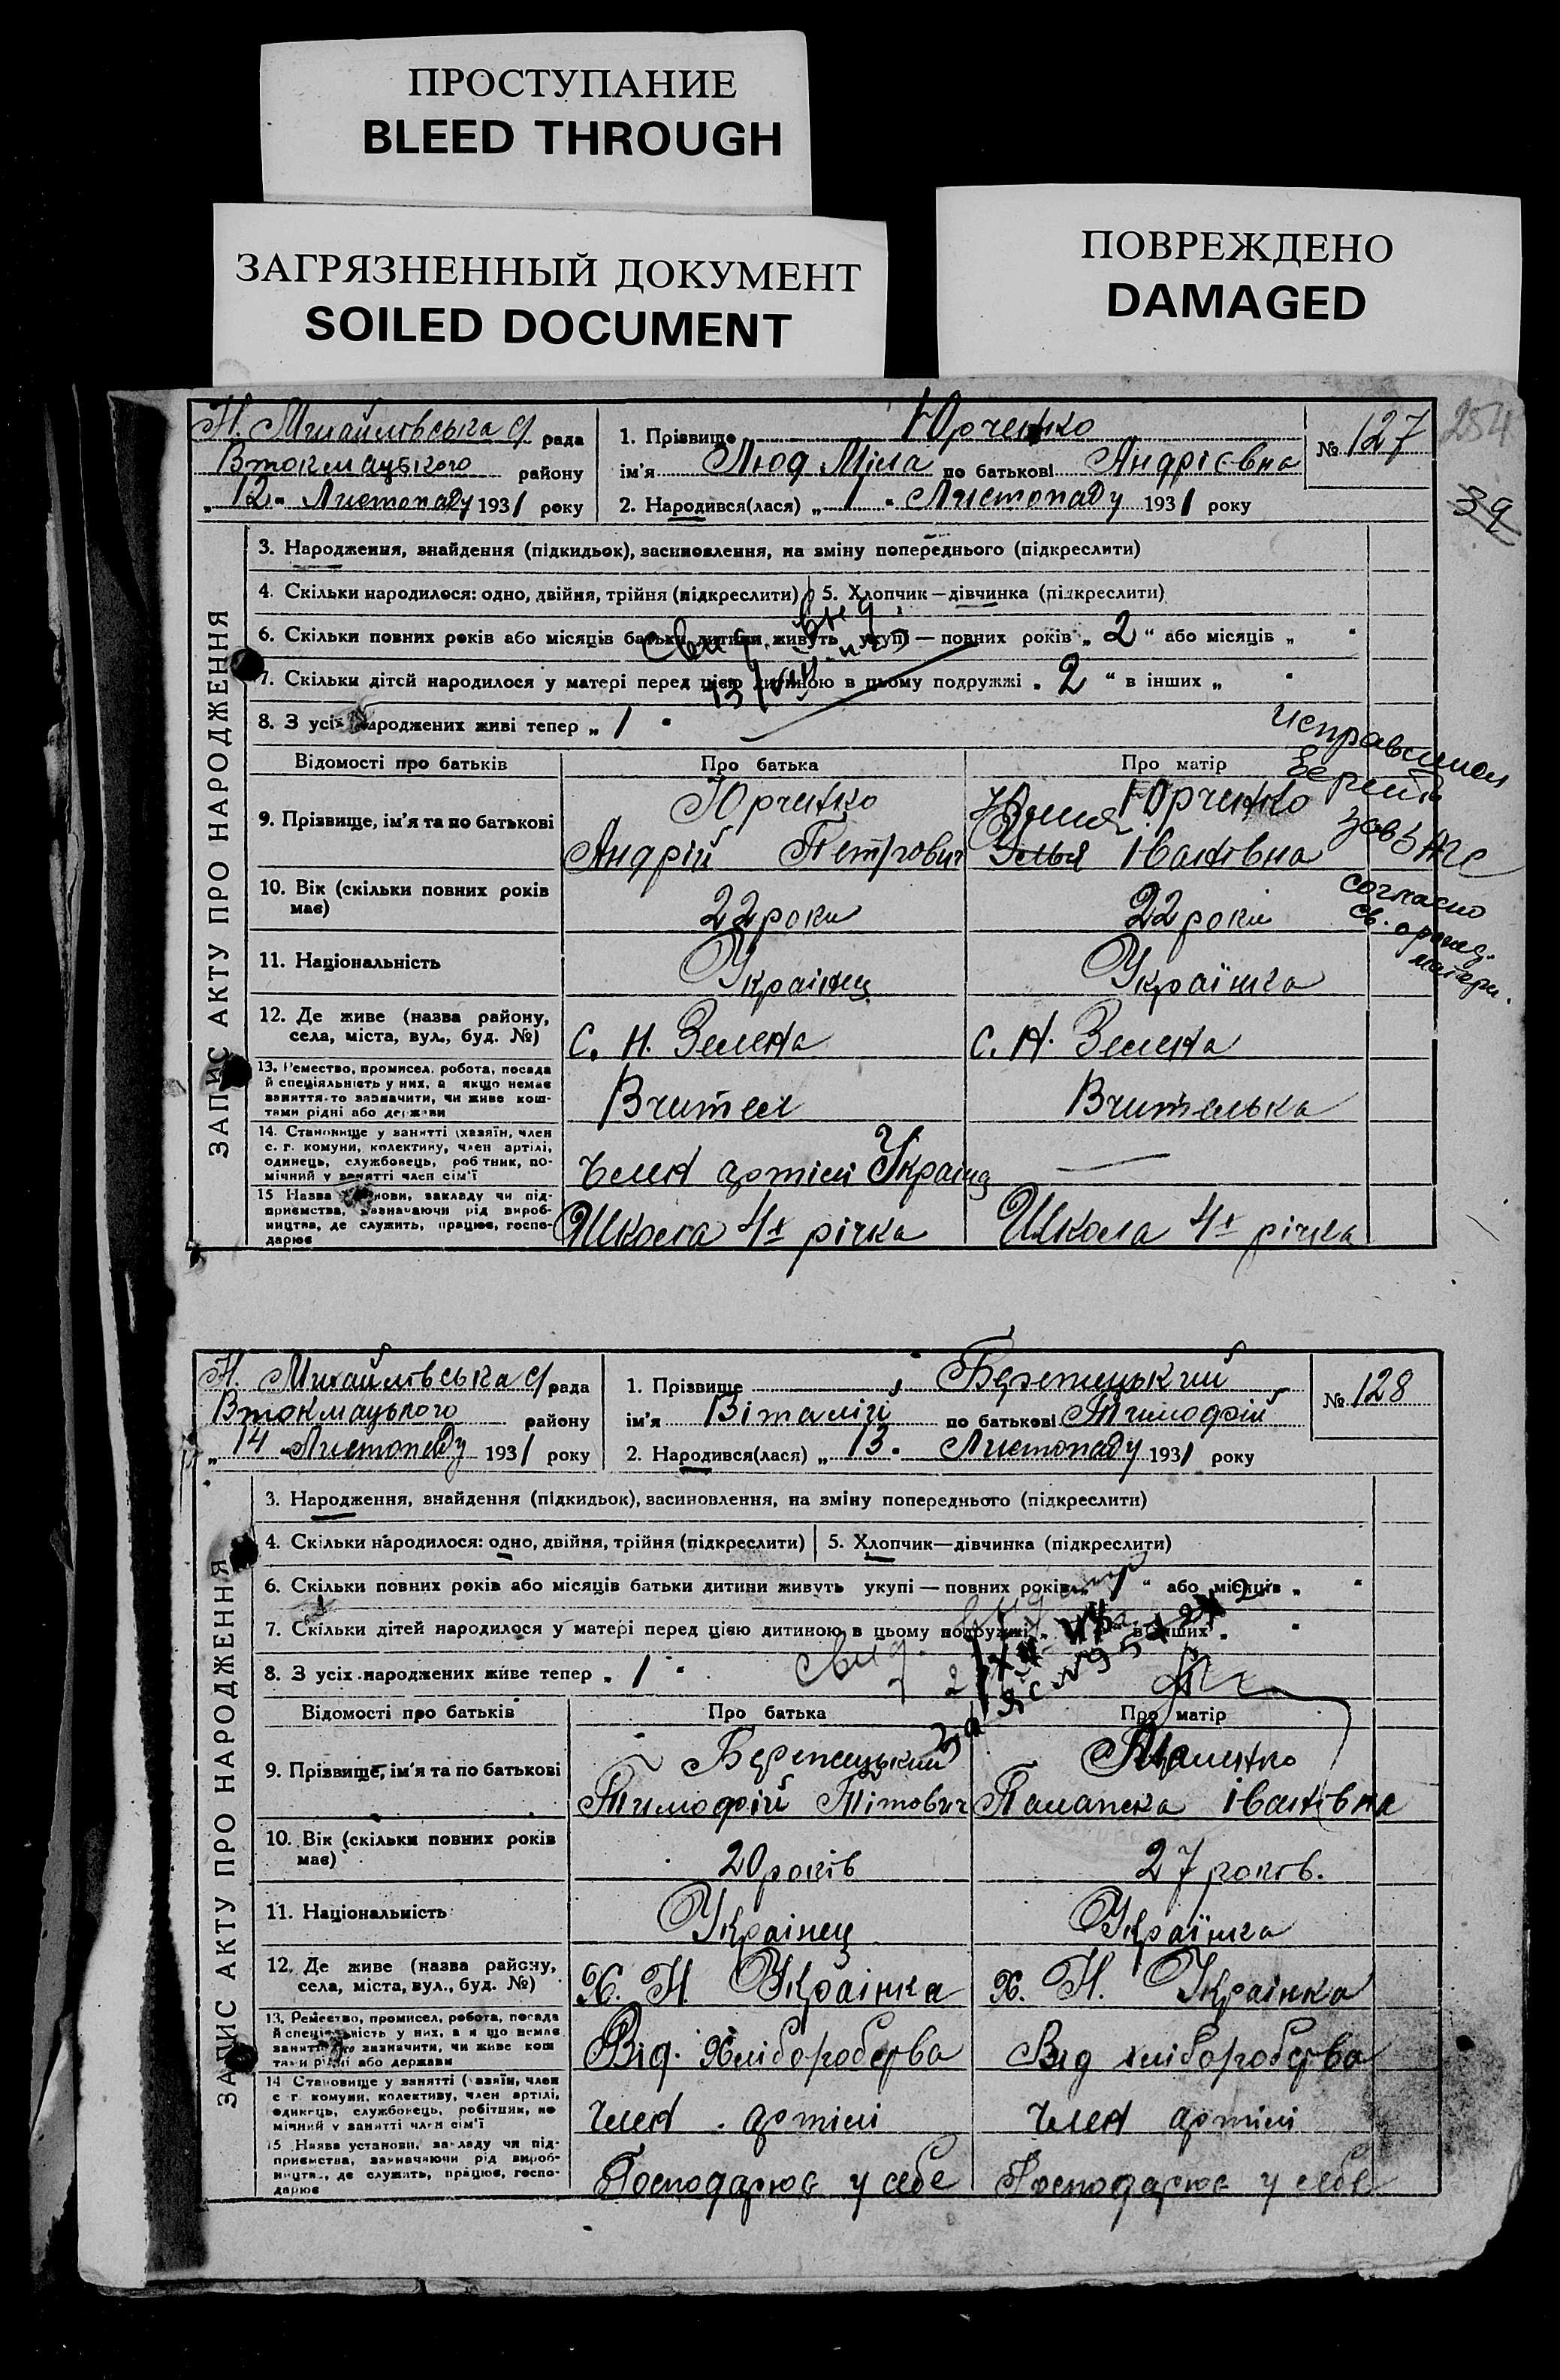 ПРОСТУПАНИЕ
BLEED THROUGH
ЗАГРЯЗНЕННЫЙ ДОКУМЕНТ
SOILED DOCUMENT
ПОВРЕЖДЕНО
DAMAGED
254
39
Н. Михайлівська с/рада
Втокмацького району
„12" Листопаду 1931 року
1. Прізвище Юрченко
ім'я Люд Міла по батькові Андрієвна
2. Народився(лася) „1" Листопаду 1931 року
№ 127
ЗАПИС АКТУ ПРО НАРОДЖЕННЯ
3. Народження, знайдення (підкидьок), засиновлення, на зміну попереднього (підкреслити)
4. Скільки народилося: одно, двійня, трійня (підкреслити) 5. Хлопчик—дівчинка (підкреслити)
6. Скільки повних років або місяців батьки дитини живуть укупі — повних років „2" або місяців „ "
7. Скільки дітей народилося у матері перед цією дитиною в цьому подружжі „2" в інших „ "
8. З усіх народжених живі тепер „1"
Відомості про батьків Про батька Про матір
9. Прізвище, ім'я та по батькові
Юрченко Юрченко
Андрій Петрович Івановна
10. Вік (скільки повних років має) 22 роки 22 роки
11. Національність Українец Українка
12. Де живе (назва району, села, міста, вул., буд. №) С. Н. Зелена С. Н. Зелена
13. Ремество, промисел, робота, посада й спеціяльність у них, а якщо немає заняття-то зазначити, чи живе коштами рідні або держави Вчител Вчителька
14. Становище у занятті (хазяїн, член с. г. комуни, колективу, член артілі, одинець, службовець, робітник, помічний у занятті член сім'ї Член артілі Україна —
15. Назва установи, закладу чи підприємства, зазначаючи рід виробництва, де служить, працює, господарює Школа 4х річка Школа 4х річка
согласно
матери.
Н. Михайлівська с/рада
Втокмацького району
„14" Листопаду 1931 року
1. Прізвище Березецький
ім'я Віталій по батькові Тимофій
2. Народився(лася) „13" Листопаду 1931 року
№ 128
ЗАПИС АКТУ ПРО НАРОДЖЕННЯ
3. Народження, знайдення (підкидьок), засиновлення, на зміну попереднього (підкреслити)
4. Скільки народилося: одно, двійня, трійня (підкреслити) 5. Хлопчик—дівчинка (підкреслити)
6. Скільки повних років або місяців батьки дитини живуть укупі — повних років „1" або місяців „ "
7. Скільки дітей народилося у матері перед цією дитиною в цьому подружжі „ " в інших „ "
8. З усіх народжених живе тепер „1"
Відомості про батьків Про батька Про матір
9. Прізвище, ім'я та по батькові
Березецький
Тимофій Тітович Палажка Івановна
10. Вік (скільки повних років має) 20 років 27 років.
11. Національність Українец Українка
12. Де живе (назва району, села, міста, вул., буд. №) Х. Н. Українка Х. Н. Українка
13. Ремество, промисел, робота, посада й спеціяльність у них, а якщо немає заняття-то зазначити, чи живе коштами рідні або держави Від. Хліборобства Від хліборобства
14. Становище у занятті (хазяїн, член с. г. комуни, колективу, член артілі, одинець, службовець, робітник, помічний у занятті член сім'ї член артілі член артілі
15. Назва установи, закладу чи підприємства, зазначаючи рід виробництва, де служить, працює, господарює Господарює у себе Господарює у себе